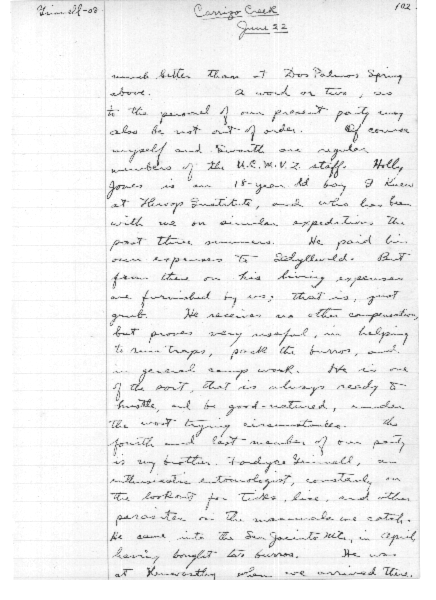 Grinnell-08
Carrizo Creek
192
June 22
much better than at Dos Palmos Spring
above. A word or two, as
to the personel of our present party may
also be not out of order. Of course
myself and Swarth are regular
members of the U.C.M.V.Z. staff. Holly
Jones is an 18-year old boy I knew
at Throop Institute, and who has been
with me on similar expeditions the
past three summers. He paid his
own expenses to Idyllwild. But
from there on his living expenses
are furnished by us; that is, just
grub. He receives no other compensation,
but proves very useful, in helping
to run traps, pack the burros, and
in general camp work. He is one
of the sort, that is always ready to
hustle, and be good-natured, under
the most trying circumstances. The
fourth and last member of our party
is my brother, Fordyce Grinnell, an
enthusiastic entomologist, constantly on
the lookout for ticks, lice, and other
parasites on the mammals we catch.
He came into the San Jacinto Mts, in April
having bought two burros. He was
at Kenworthy when we arrived there.